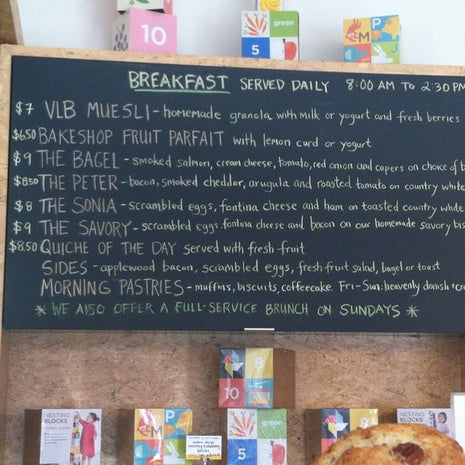 10
green
5
P
BREAKFAST SERVED DAILY 8:00 AM TO 2:30 PM
$7 VLB MUESLI - homemade granola with milk or yogurt and fresh berries
$6.50 BAKESHOP FRUIT PARFAIT with lemon curd or yogurt
$9 THE BAGEL - smoked salmon, cream cheese, tomato, red onion and capers on choice of b
$8.50 THE PETER - bacon, smoked cheddar, arugula and roasted tomato on country white
$8 THE SONIA - scrambled eggs, fontina cheese and ham on toasted country white
$9 THE SAVORY - scrambled eggs, fontina cheese and bacon on our homemade savory bis
$8.50 QUICHE OF THE DAY served with fresh fruit
SIDES - applewood bacon, scrambled eggs, fresh fruit salad, bagel or toast
MORNING PASTRIES - muffins, biscuits, coffeecake. Fri-Sun: heavenly danish + cr
* WE ALSO OFFER A FULL-SERVICE BRUNCH ON SUNDAYS *
8
10
NESTING BLOCKS
P
M
green
5
NESTING BLOCKS